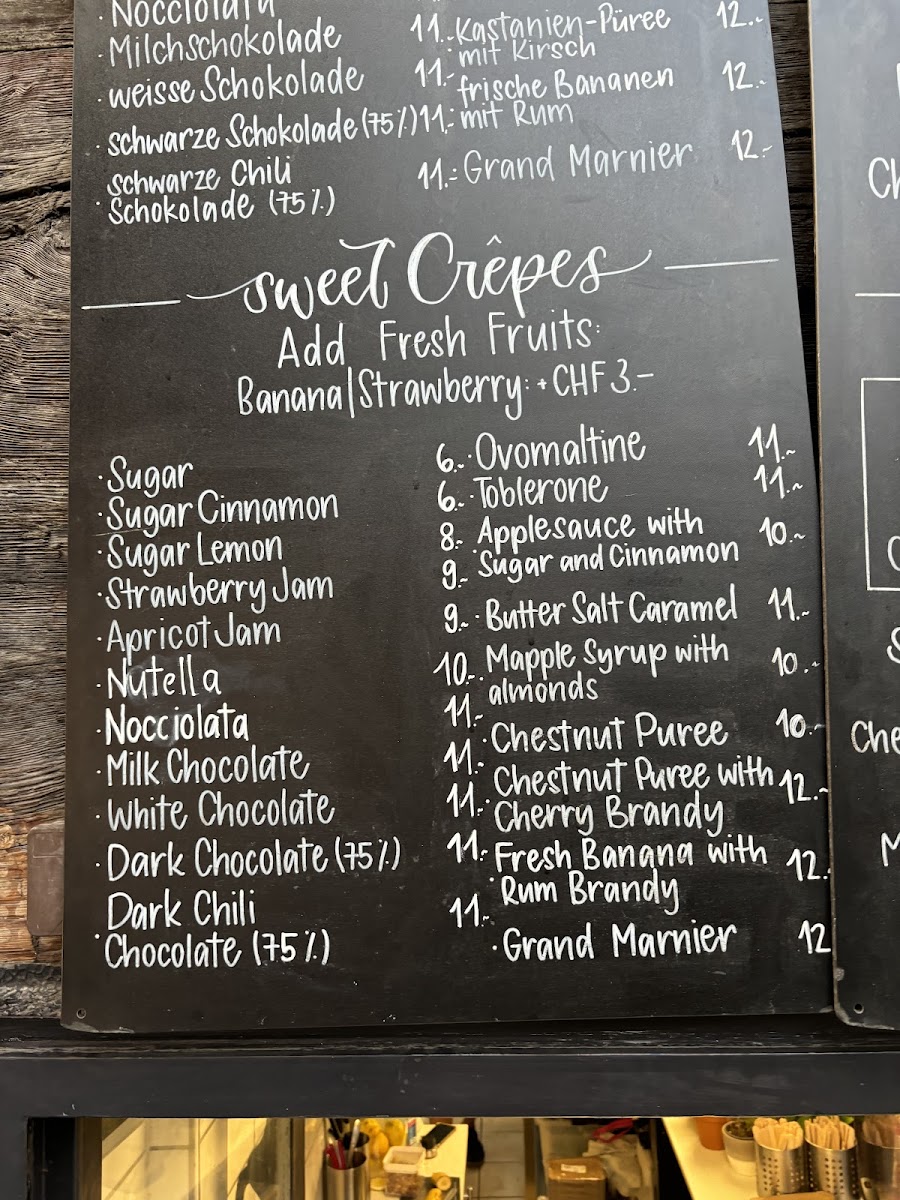 Nocciolata
· Milchschokolade 11.-
· weisse Schokolade 11.-
· schwarze Schokolade (75%) 11.-
schwarze Chili
· Schokolade (75%) 11.-
· Kastanien-Püree 12.-
mit Kirsch
· frische Bananen 12.-
mit Rum
· Grand Marnier 12.-
sweet Crêpes
Add Fresh Fruits:
Banana|Strawberry: + CHF 3.-
· Sugar 6.-
· Sugar Cinnamon 6.-
· Sugar Lemon 8.-
· Strawberry Jam 9.-
· Apricot Jam 9.-
· Nutella 10.-
· Nocciolata 11.-
· Milk Chocolate 11.-
· White Chocolate 11.-
· Dark Chocolate (75%) 11.-
Dark Chili
· Chocolate (75%) 11.-
· Ovomaltine 11.-
· Toblerone 11.-
· Applesauce with 10.-
Sugar and Cinnamon
· Butter Salt Caramel 11.-
· Mapple Syrup with 10.-
almonds
· Chestnut Puree 10.-
· Chestnut Puree with 12.-
Cherry Brandy
· Fresh Banana with 12.
Rum Brandy
· Grand Marnier 12